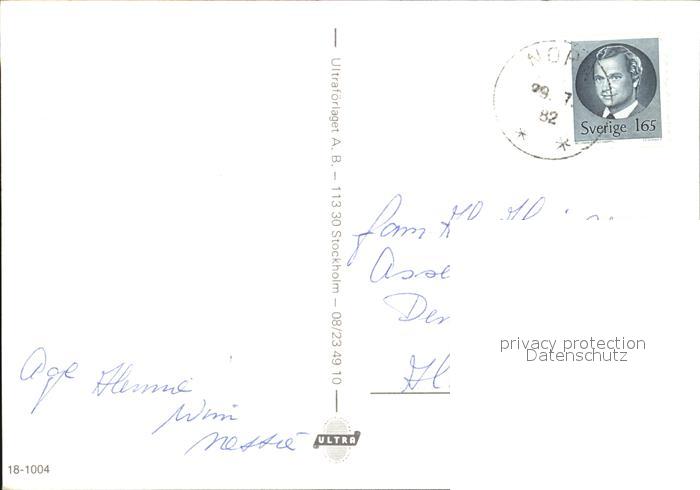 NOR
29. 7.
82
Sverige 165
Ultraförlaget A. B. – 113 30 Stockholm – 08/23 49 10
fam
Asse
Den
privacy protection
Datenschutz
Age Hennie
Wim
Nettie
ULTRA
18-1004